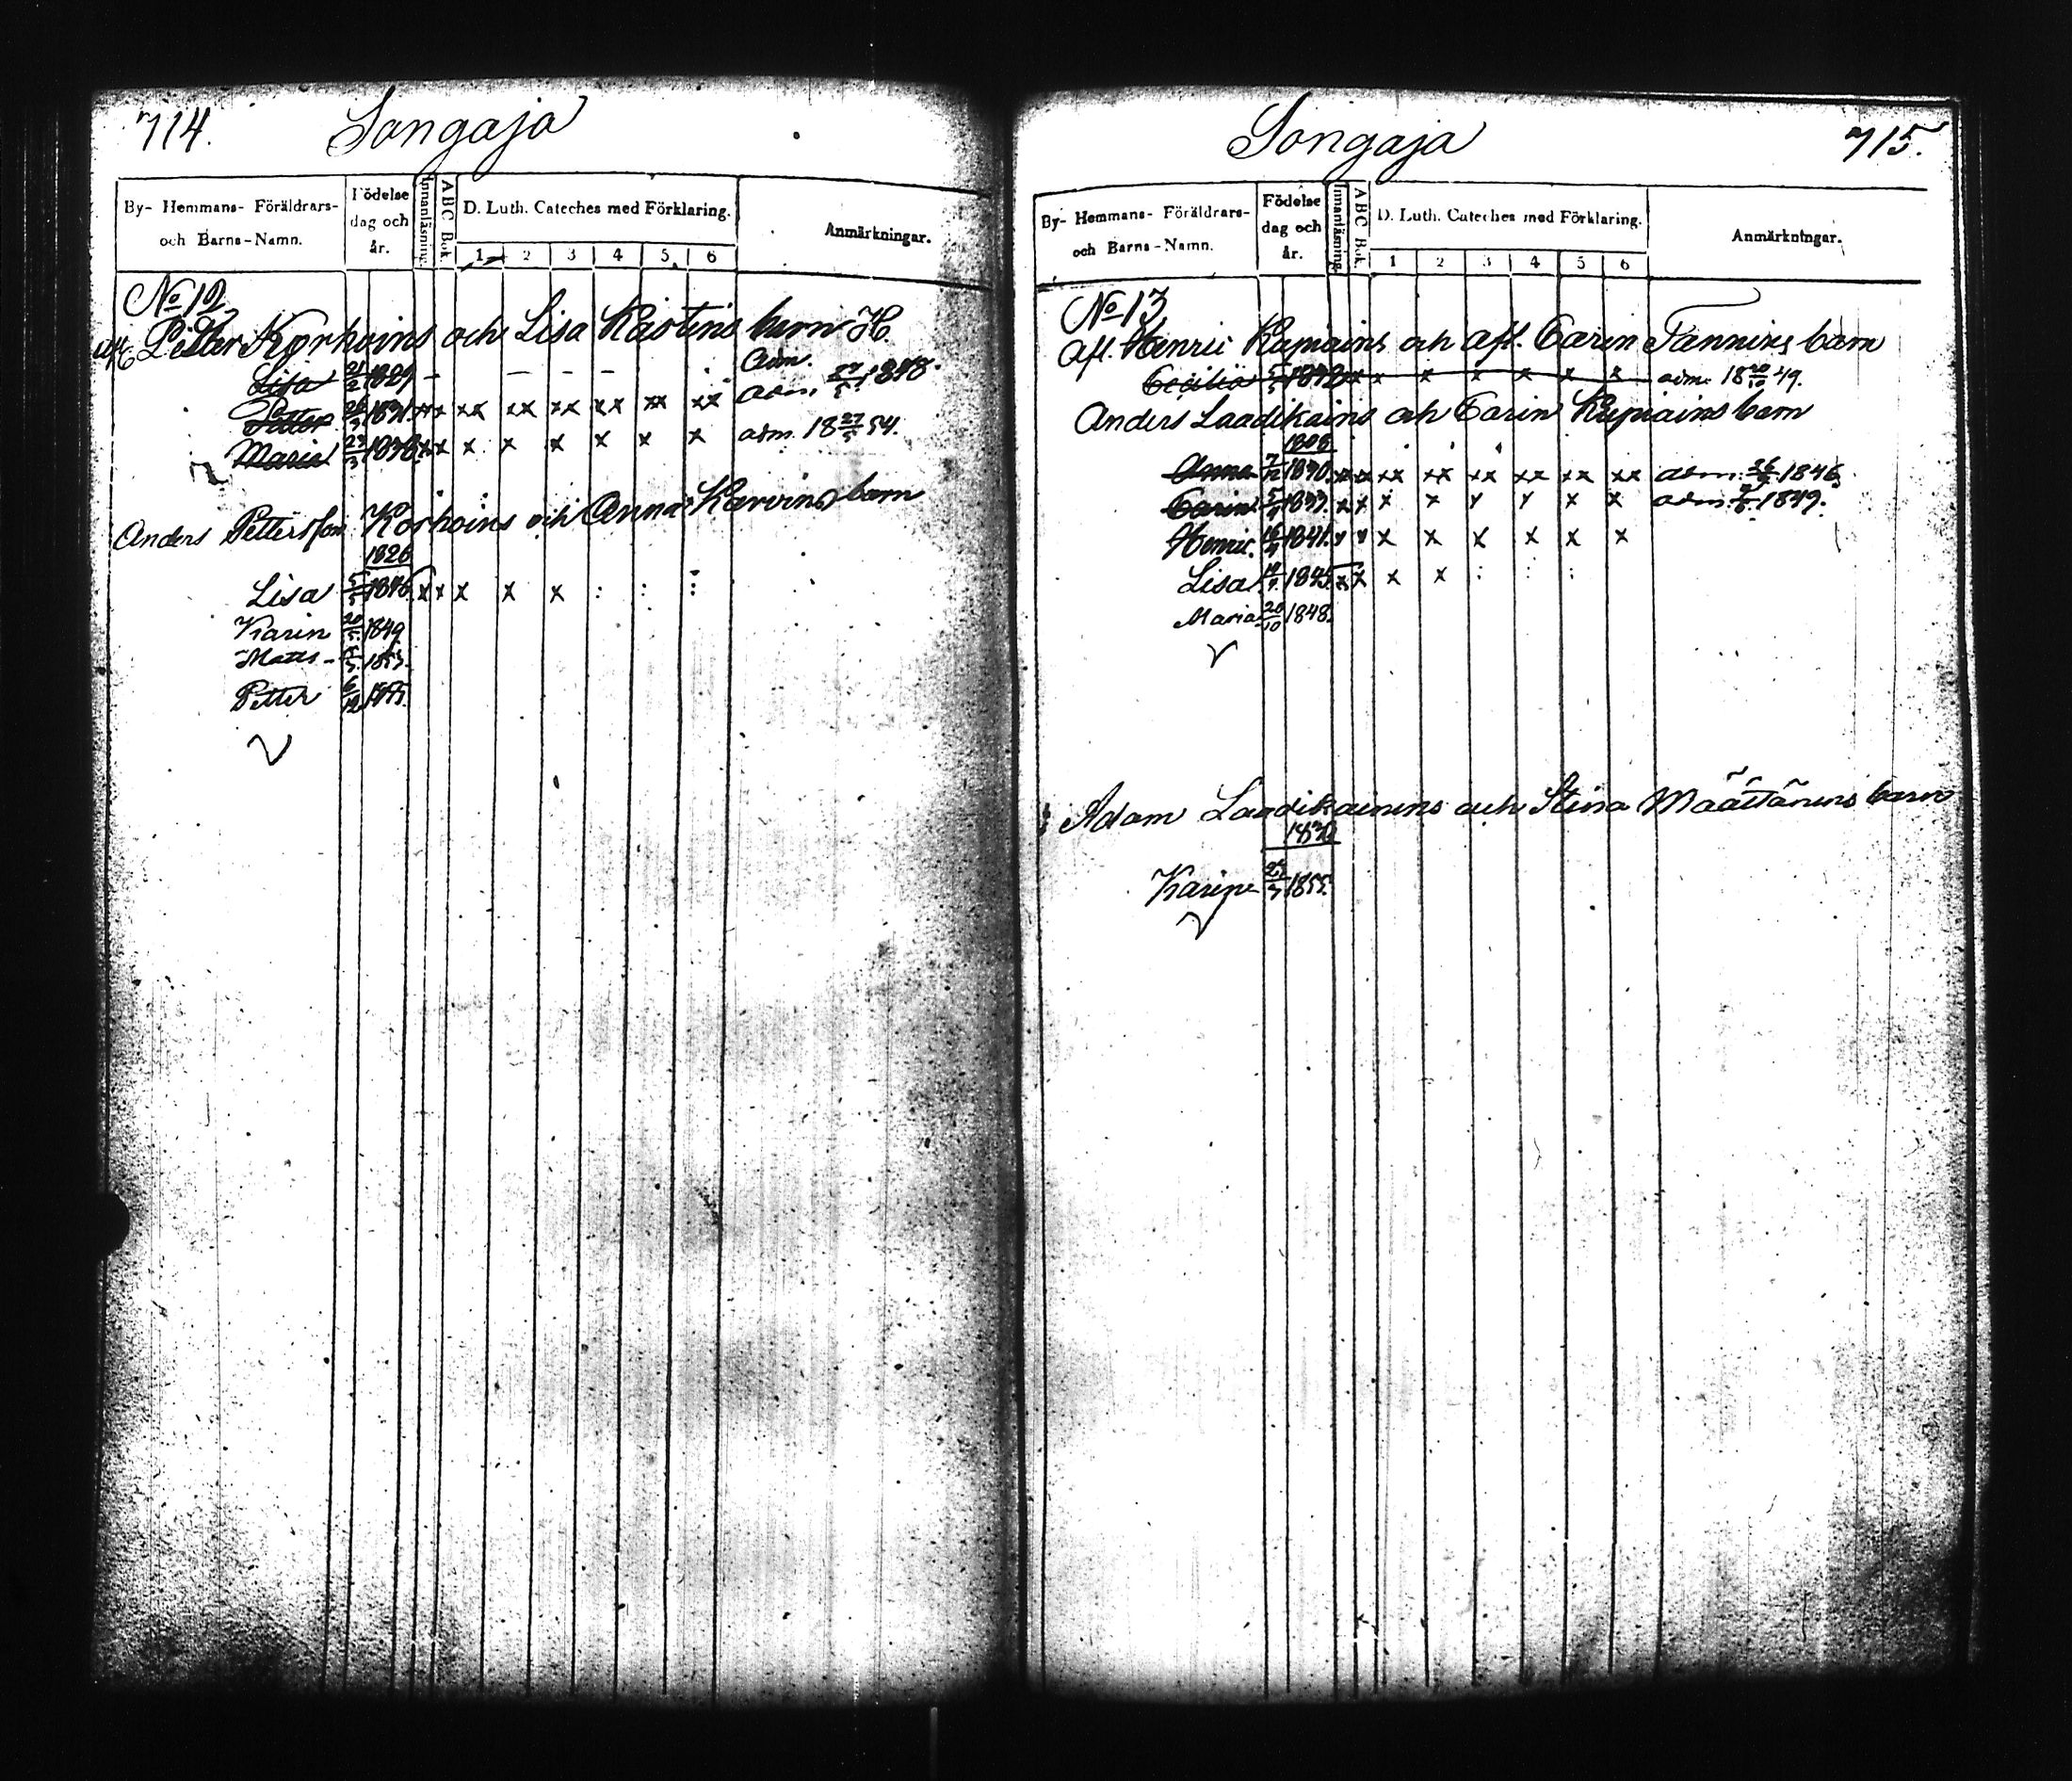 714.
Songaja
By- Hemmans- Föräldrars-
och Barns-Namn.
Födelse
dag och
år.
Innanläsning.
ABC Bok.
D. Luth. Cateches med Förklaring.
1 2 3 4 5 6
Anmärkningar.
No 12
Petter Korhoins och Lisa barn H.
Lisa 21/2 1829 - - - - Adm.
Petter 1831. xx xx xx xx xx xx xx adm. 1848.
Maria 23/3 1838 x x x x x x x x adm. 18 27/5 54.
Anders Pettersson Korhoins och Anna Karvins barn
1826
Lisa 5/5 1846. x x x x x : : :
Karin 1849
Matts 1853.
Petter 6/12 1855.
Songaja
715.
By- Hemmans- Föräldrars-
och Barns-Namn.
Födelse
dag och
år.
Innanläsning.
ABC Bok.
D. Luth. Cateches med Förklaring.
1 2 3 4 5 6
Anmärkningar.
No 13
Afl. Henric Kupiains och afl. Carin Tannins barn
Cecilia x x x x x x x adm. 18 20/10 49.
Anders Laadikains och Carin Kupiains barn
1808
Anna 1830. xx xx xx xx xx xx xx adm. 1846
Carin 1833. x x x x x x x x adm. 1849.
Henric 1841. x x x x x x x x
Lisa 1845. x x x x : : :
Maria 20/10 1848.
Adam Laadikainens och Stina Määttänens barn
1830
Karin 1855.